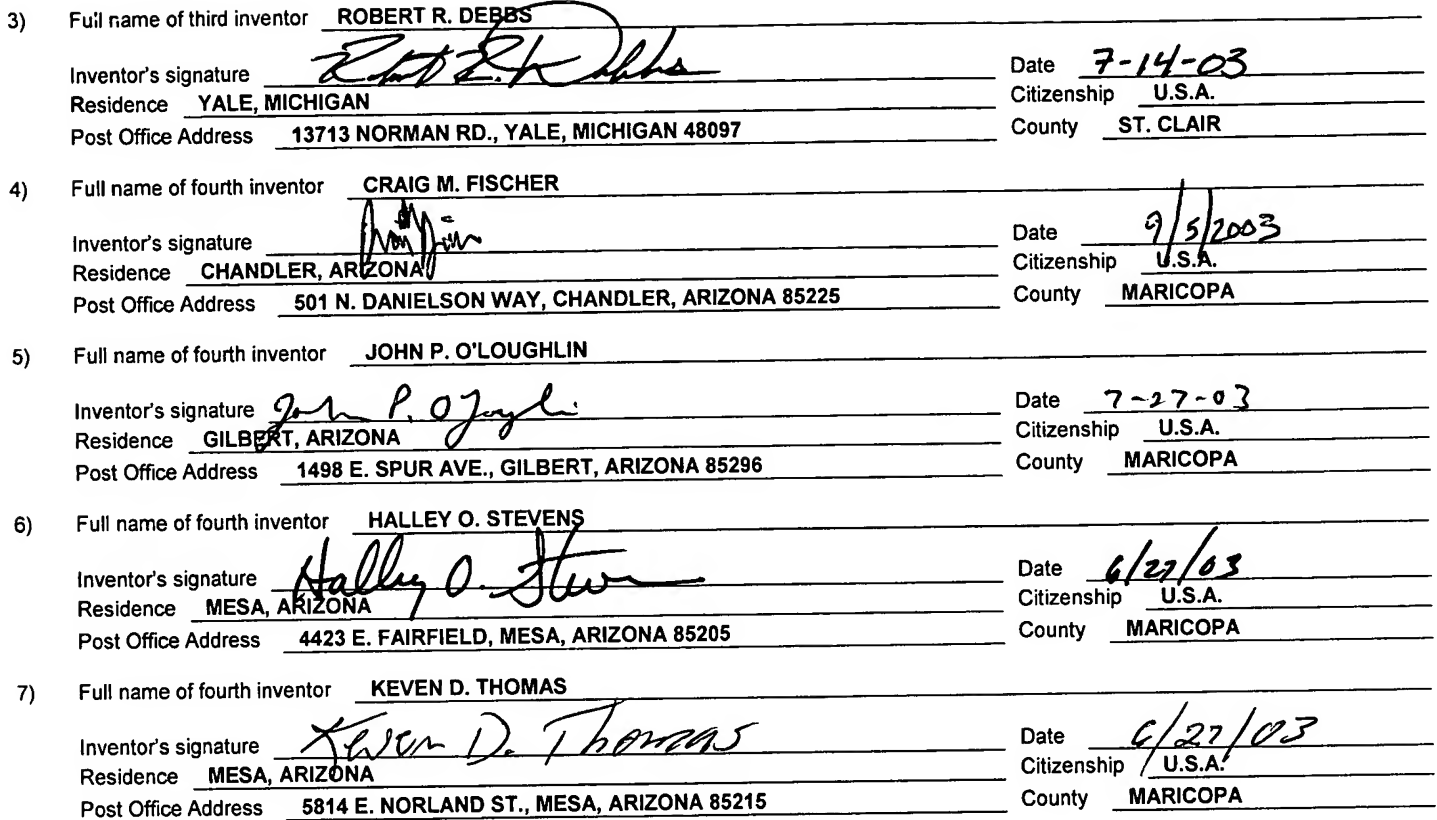 3) Full name of third inventor ROBERT R. DEBBS
Inventor's signature Robert R. Debbs Date 7-14-03
Residence YALE, MICHIGAN Citizenship U.S.A.
Post Office Address 13713 NORMAN RD., YALE, MICHIGAN 48097 County ST. CLAIR
4) Full name of fourth inventor CRAIG M. FISCHER
Inventor's signature Date 9/5/2003
Residence CHANDLER, ARIZONA Citizenship U.S.A.
Post Office Address 501 N. DANIELSON WAY, CHANDLER, ARIZONA 85225 County MARICOPA
5) Full name of fourth inventor JOHN P. O'LOUGHLIN
Inventor's signature John P. O'Loughlin Date 7-27-03
Residence GILBERT, ARIZONA Citizenship U.S.A.
Post Office Address 1498 E. SPUR AVE., GILBERT, ARIZONA 85296 County MARICOPA
6) Full name of fourth inventor HALLEY O. STEVENS
Inventor's signature Halley O. Stevens Date 6/27/03
Residence MESA, ARIZONA Citizenship U.S.A.
Post Office Address 4423 E. FAIRFIELD, MESA, ARIZONA 85205 County MARICOPA
7) Full name of fourth inventor KEVEN D. THOMAS
Inventor's signature Keven D. Thomas Date 6/27/03
Residence MESA, ARIZONA Citizenship U.S.A.
Post Office Address 5814 E. NORLAND ST., MESA, ARIZONA 85215 County MARICOPA